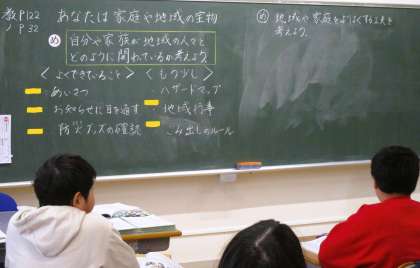 教P122
ノP32
あなたは家庭や地域の宝物
め 自分や家族が地域の人々と
どのように関わっているか考えよう。
〈よくできていること〉
・あいさつ
・お知らせに目を通す
・防災グッズの確認
〈もう少し〉
・ハザードマップ
・地域行事
・ごみ出しのルール
め 地域や家庭をよりよくする工夫を
考えよう。